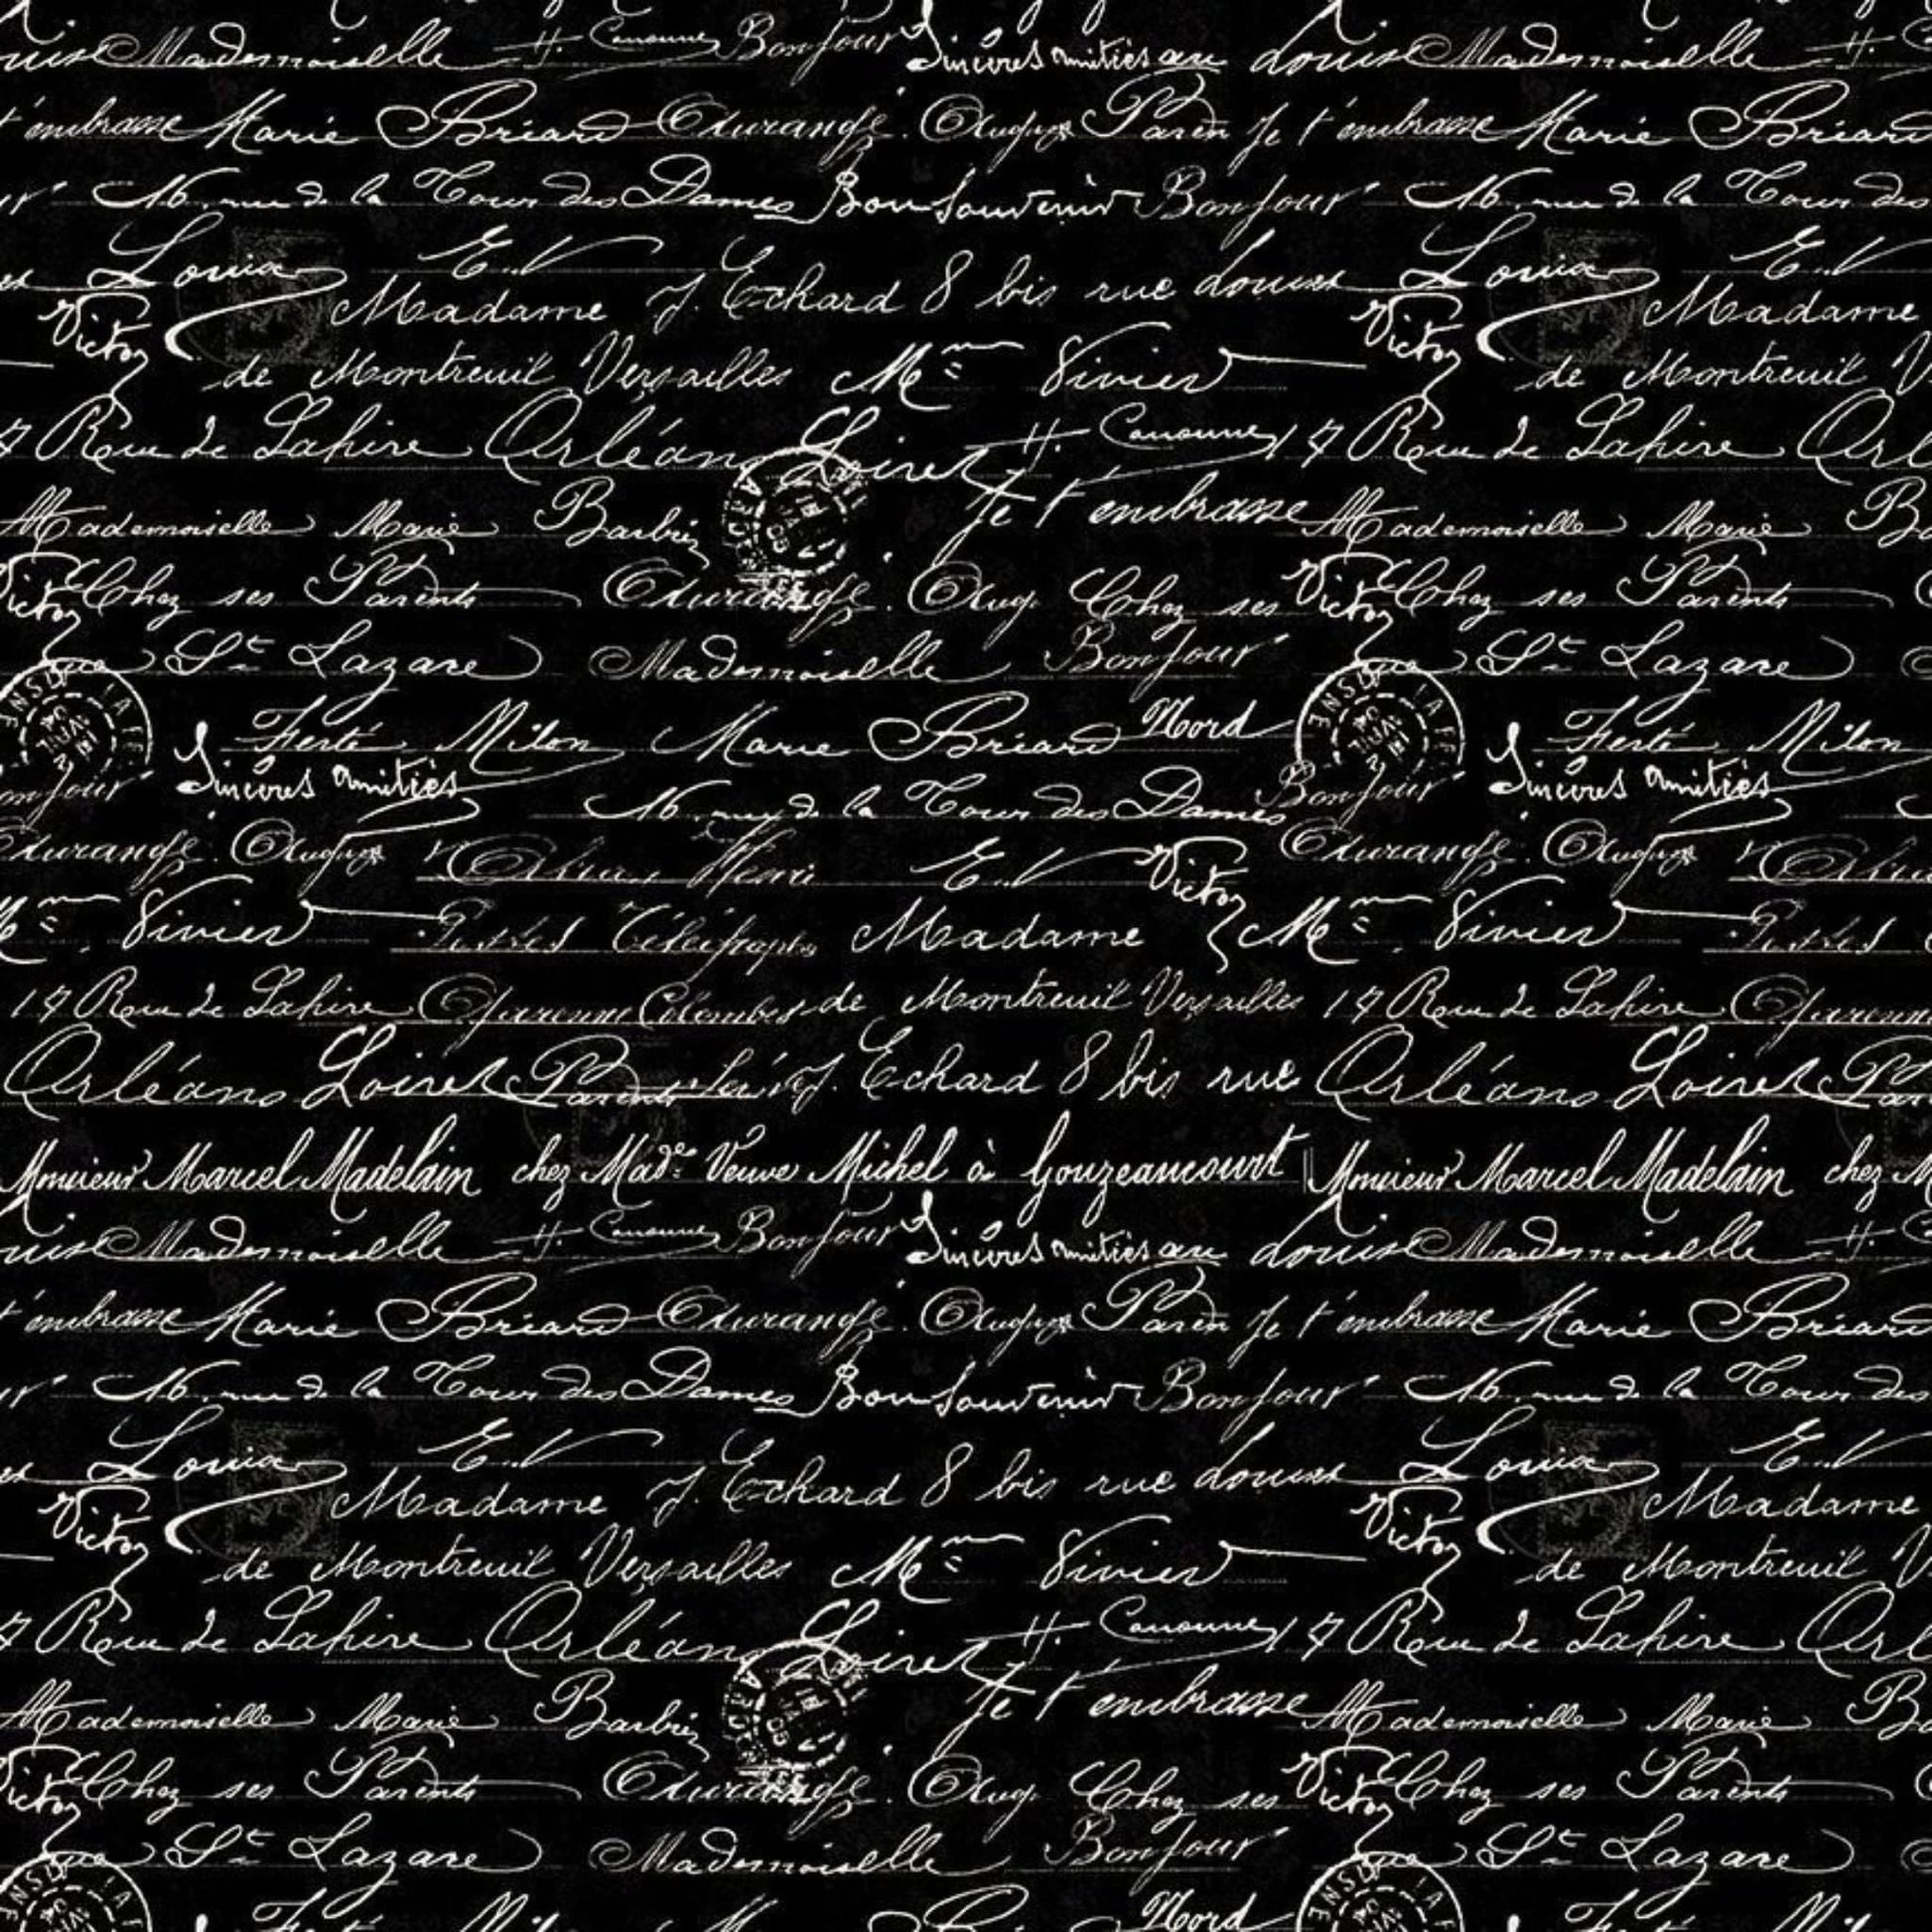 Louise Mademoiselle H. Canonne Bonjour Sincères amitiés au Louise Mademoiselle H.
t'embrasse Marie Briard Auguste Je t'embrasse Marie Briard
16 rue de la Tour des Dames Bon Souvenir Bonjour 16 rue de la Tour des
Louis E.V. Louis E.V.
Victor Madame J. Echard 8 bis rue Louise Victor Madame
de Montreuil Versailles Mme Vivier de Montreuil
17 Rue de Lahire Orléans Loiret H. Canonne 17 Rue de Lahire
Mademoiselle Marie Barbier Je t'embrasse Mademoiselle Marie
Victor Chez ses Parents Aug. Chez ses Victor Chez ses Parents
St Lazare Mademoiselle Bonjour St Lazare
Ferté Milon Marie Briard Nord Ferté Milon
Bonjour Sincères amitiés 16 rue de la Tour des Dames Bonjour Sincères amitiés
Auguste Henri E.V. Victor Auguste
Mme Vivier Postes Télégraphes Madame Mme Vivier Postes
17 Rue de Lahire Garenne Colombes de Montreuil Versailles 17 Rue de Lahire Garenne
Orléans Loiret J. Echard 8 bis rue Orléans Loiret
Monsieur Marcel Madelain chez Made Veuve Michel à Gouzeaucourt Monsieur Marcel Madelain chez
Louise Mademoiselle H. Canonne Bonjour Sincères amitiés au Louise Mademoiselle H.
t'embrasse Marie Briard Auguste Je t'embrasse Marie Briard
16 rue de la Tour des Dames Bon Souvenir Bonjour 16 rue de la Tour des
Louis E.V. Louis E.V.
Victor Madame J. Echard 8 bis rue Louise Victor Madame
de Montreuil Versailles Mme Vivier de Montreuil
17 Rue de Lahire Orléans Loiret H. Canonne 17 Rue de Lahire
Mademoiselle Marie Barbier Je t'embrasse Mademoiselle Marie
Victor Chez ses Parents Aug. Chez ses Victor Chez ses Parents
St Lazare Mademoiselle Bonjour St Lazare
Nord